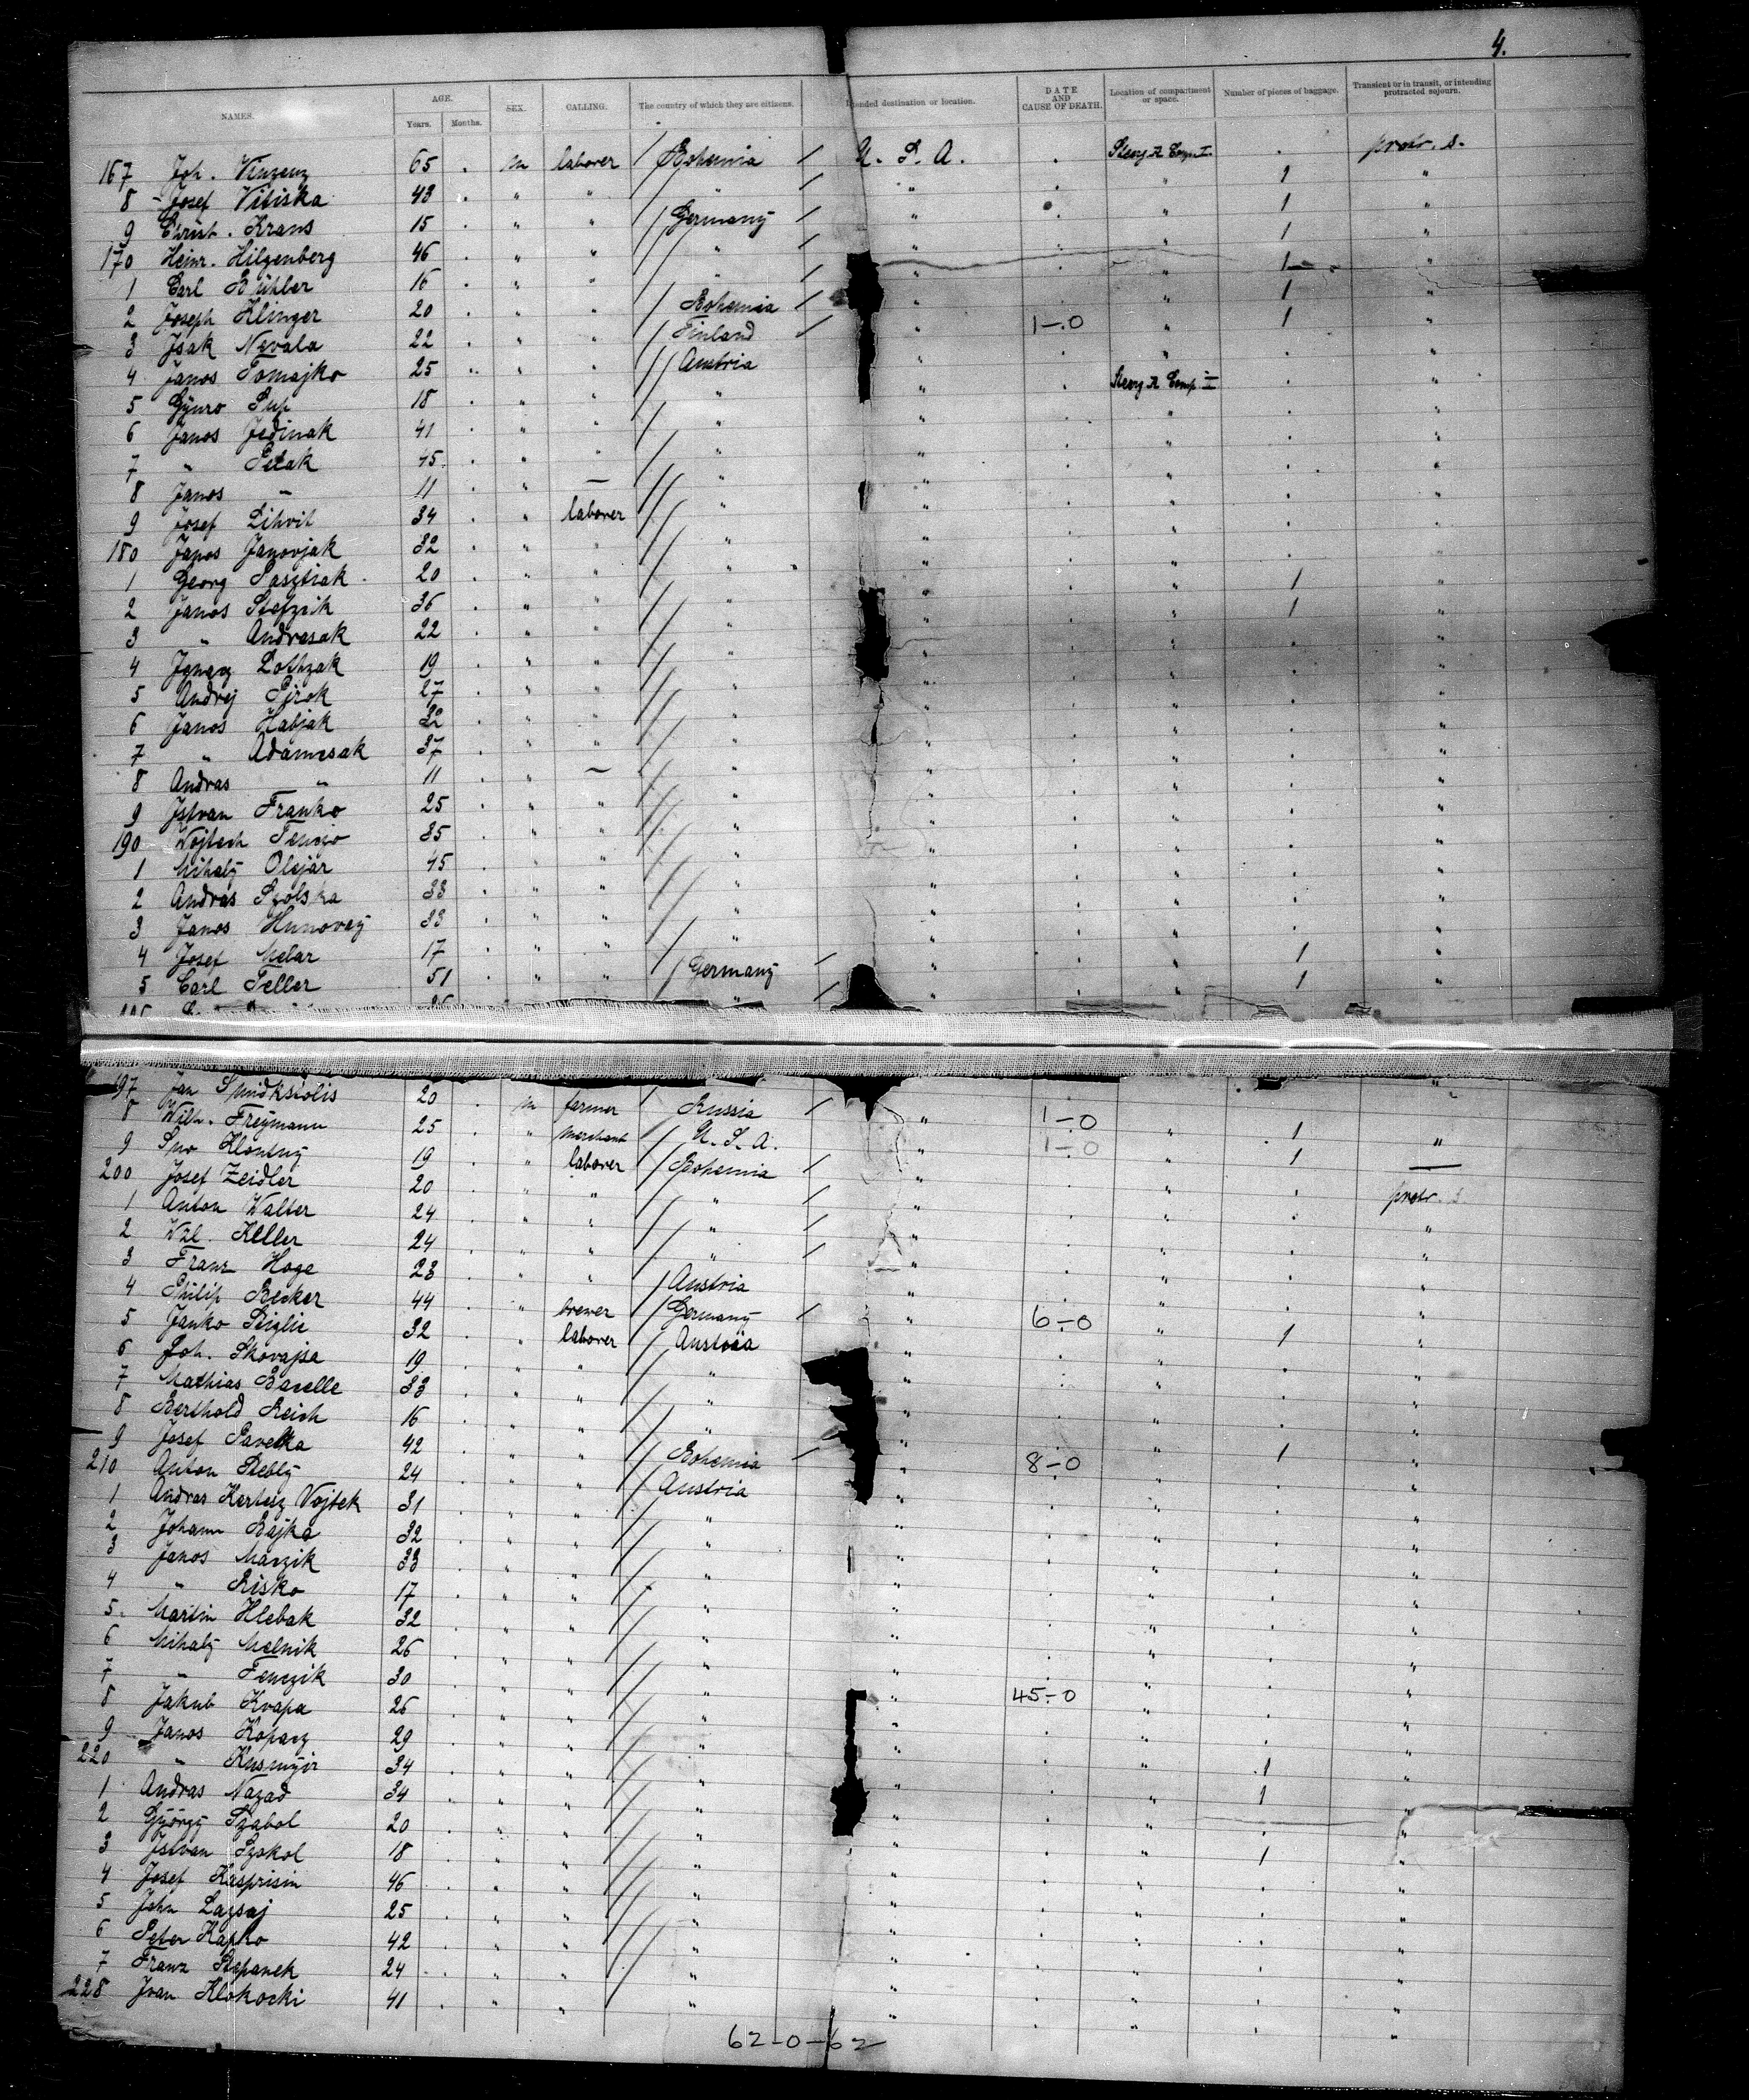 4.
NAMES. AGE. Years. Months. SEX. CALLING. The country of which they are citizens. Intended destination or location. DATE AND CAUSE OF DEATH. Location of compartment or space. Number of pieces of baggage. Transient or in transit, or intending protracted sojourn.
167 Joh. Vinzenz 65 . m laborer / Bohemia / U. S. A. . . protr. s.
8 Josef Vitiska 43 . " " / " / " . " 1 "
9 Christ. Krans 15 . " " / Germany / " . " 1 "
170 Heinr. Hilgenberg 46 . " " / " / " . " 1 "
1 Carl Bühler 16 . " " / " / " . " 1 "
2 Joseph Klinger 20 . " " / Bohemia / " . " 1 "
3 Isak Nevala 22 . " " / Finland / " 1-0 " 1 "
4 Janos Tomajko 25 . " " // Austria " . " . "
5 18 . " " / " " . Steerg. A Comp. I . "
6 Janos Jedinak 41 . " " / " " . " . "
7 " Petak 45 . " " / " " . " . "
8 Janos " 11 . " — // " " . " . "
9 Josef Lihvit 34 . " laborer // " " . " . "
180 Janos Janovjak 32 . " " // " " . " . "
1 Georg Pasztiak 20 . " " / " " . " 1 "
2 Janos Stefzik 36 . " " // " " . " 1 "
3 " Andrasak 22 . " " // " " . " . "
4 Lothzak 19 . " " // " " . " . "
5 Andrej Pirok 27 . " " // " " . " . "
6 Janos Habjak 32 . " " // " " . " . "
7 " Adamcsak 37 . " " // " " . " . "
8 Andras " 11 . " — // " " . " . "
9 Istvan Franko 25 . " " // " " . " . "
190 Wojtech 35 . " " // " " . " . "
1 Mihaly Olejar 45 . " " // " " . " . "
2 Andras Szolska 33 . " " // " " . " . "
3 Janos Hunovay 33 . " " // " " . " . "
4 Josef Melar 17 . " " / " " . " 1 "
5 Carl Teller 51 . " " / Germany / " . " 1 "
197 Jan 20 . m farmer / Russia / " 1-0 " . "
8 Wilh. Freymann 25 . " merchant / U. S. A. " 1-0 " 1 —
9 Klontny 19 . " laborer / Bohemia / " . " 1 protr. s
200 Josef Zeidler 20 . " " / " / " . " . "
1 Anton Walter 24 . " " / " / " . " . "
2 Wzl. Keller 24 . " " / " / " . " . "
3 Franz Hoge 23 . " " / Austria " . " . "
4 Philip Becker 44 . " brewer / Germany / " 6-0 " 1 "
5 Janko 32 . " laborer / Austria " . " . "
6 Joh. Skovajsa 19 . " " / " " . " . "
7 Mathias Barelle 33 . " " / " " . " . "
8 Berthold Reich 16 . " " / " " . " 1 "
9 Josef Pavelka 42 . " " / Bohemia / " 8-0 " . "
210 Anton 24 . " " / Austria " . " . "
1 Andras Kertesz Vojtek 31 . " " / " " . " . "
2 Johann Bajka 32 . " " / " " . " . "
3 Janos Marzik 33 . " " / " " . " . "
4 " Risko 17 . " " / " " . " . "
5 Martin Hlebak 32 . " " / " " . " . "
6 Mihaly Melnik 26 . " " // " " . " . "
7 " Fenczik 30 . " " // " " 45-0 " . "
8 Jakub Kvapa 26 . " " // " " . " . "
9 Janos Koparz 29 . " " // " " . " 1 "
220 " Kusmyir 34 . " " // " " . " 1 "
1 Andras Nazad 34 . " " // " " . " . "
2 György Szabol 20 . " " // " " . " 1 "
3 Istvan Szokol 18 . " " // " " . " . "
4 Josef Kasprisin 46 . " " // " " . " . "
5 John Lazsaj 25 . " " // " " . " . "
6 Peter Kapko 42 . " " // " " . " . "
7 Franz Stepanek 24 . " " // " " . " . "
228 Ivan Klokocki 41 . " " " " . " . "
62-0-62